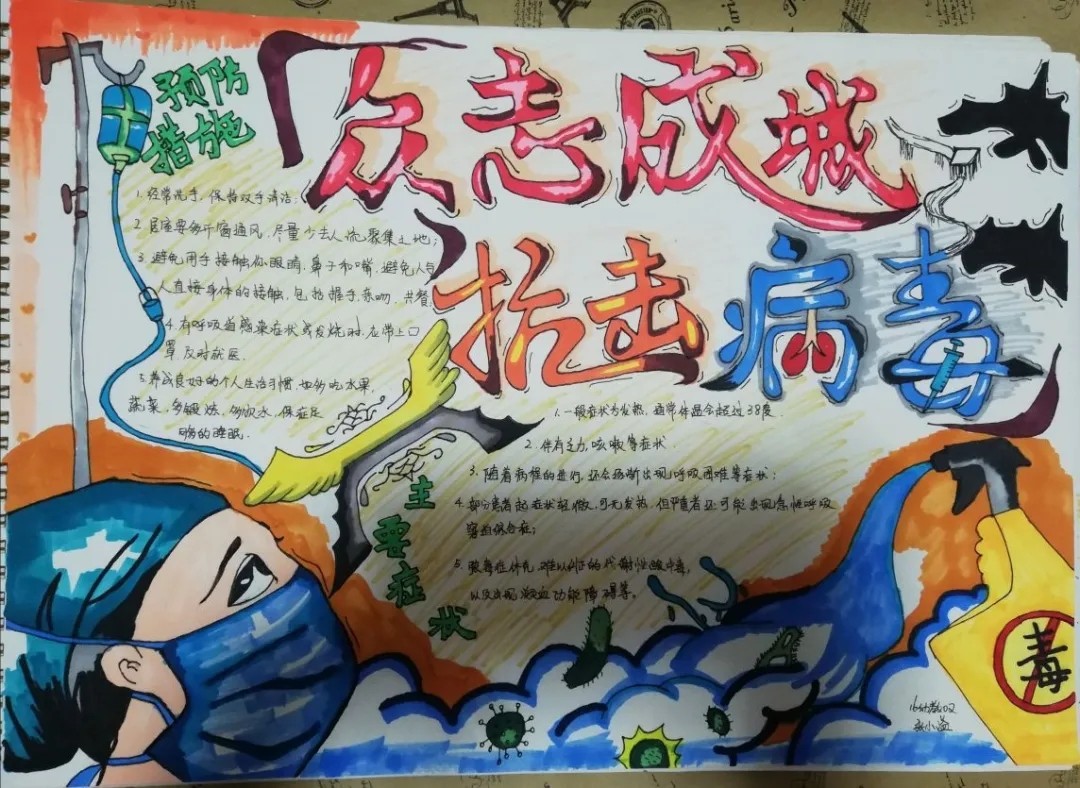 众志成城
抗击病毒
预防
措施
1. 经常洗手，保持双手清洁；
2. 居室要多开窗通风，尽量少去人流聚集之地；
3. 避免用手接触你眼睛，鼻子和嘴，避免人与
人直接身体的接触，包括握手，亲吻，共餐，
4. 有呼吸道感染症状或发烧时，应带上口
罩及时就医.
5. 养成良好的个人生活习惯，如多吃水果，
蔬菜，多锻炼，多饮水，保证足
够的睡眠.
主要症状
1. 一般症状为发热，通常体温会超过38度.
2. 伴有乏力，咳嗽等症状.
3. 随着病程的进行，还会逐渐出现呼吸困难等症状；
4. 部分患者起症状轻微，可无发热，但严重者还可能出现急性呼吸
窘迫综合症；
5. 脓毒症休克，难以纠正的代谢性酸中毒，
以及出现凝血功能障碍等。
毒
16幼教02
张小